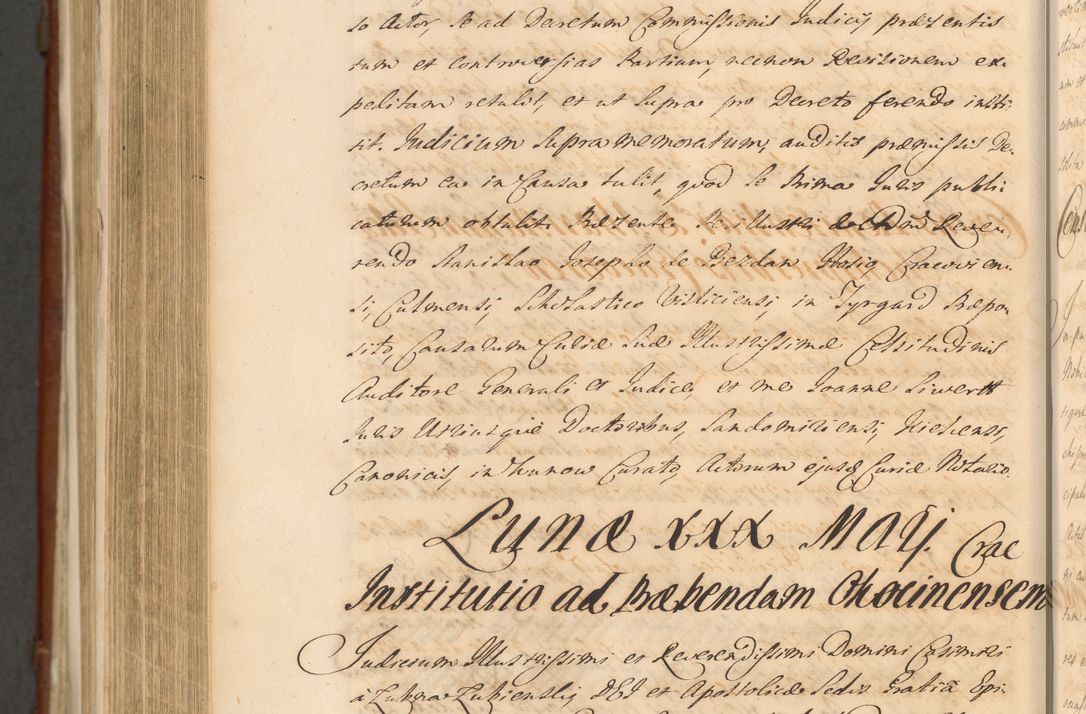 so Actor, se ad Decretum Commissionis Iudicij præsentis
tum et controversias Partium, necnon Revisionem ex,
peditam retulit, et ut supra pro Decreto ferendo insti,
tit. Iudicium supra memoratum, auditis præmissis De,
cretum ea in Causa tulit, quod se Prima Iuris publi
caturum obtulit. Præsente Perillustri Rever,
rendo Stanislao Josepho de Bezdan Hosio, Cracovien,
si, Culmensi, Scholastico Visliciensi, in Tyrgard Præpo,
sito, Causarum Curiæ Suæ Illustrissimæ Celsitudinis
Auditore Generali et Iudice, et me Joanne Siwertt
Iuris Utriusque Doctoribus, Sandomiriensi, Kielcensi,
Canonicis, in Curato, Actorum ejusq Curiæ Notario.
Lunæ XXX Maij. Crac
Institutio ad Præbendam Chocinensem
Iudicium Illustrissimi et Reverendissimi Domini Casimiri
à Łubna Łubienski DEI et Apostolicæ Sedis Gratiâ Epi,